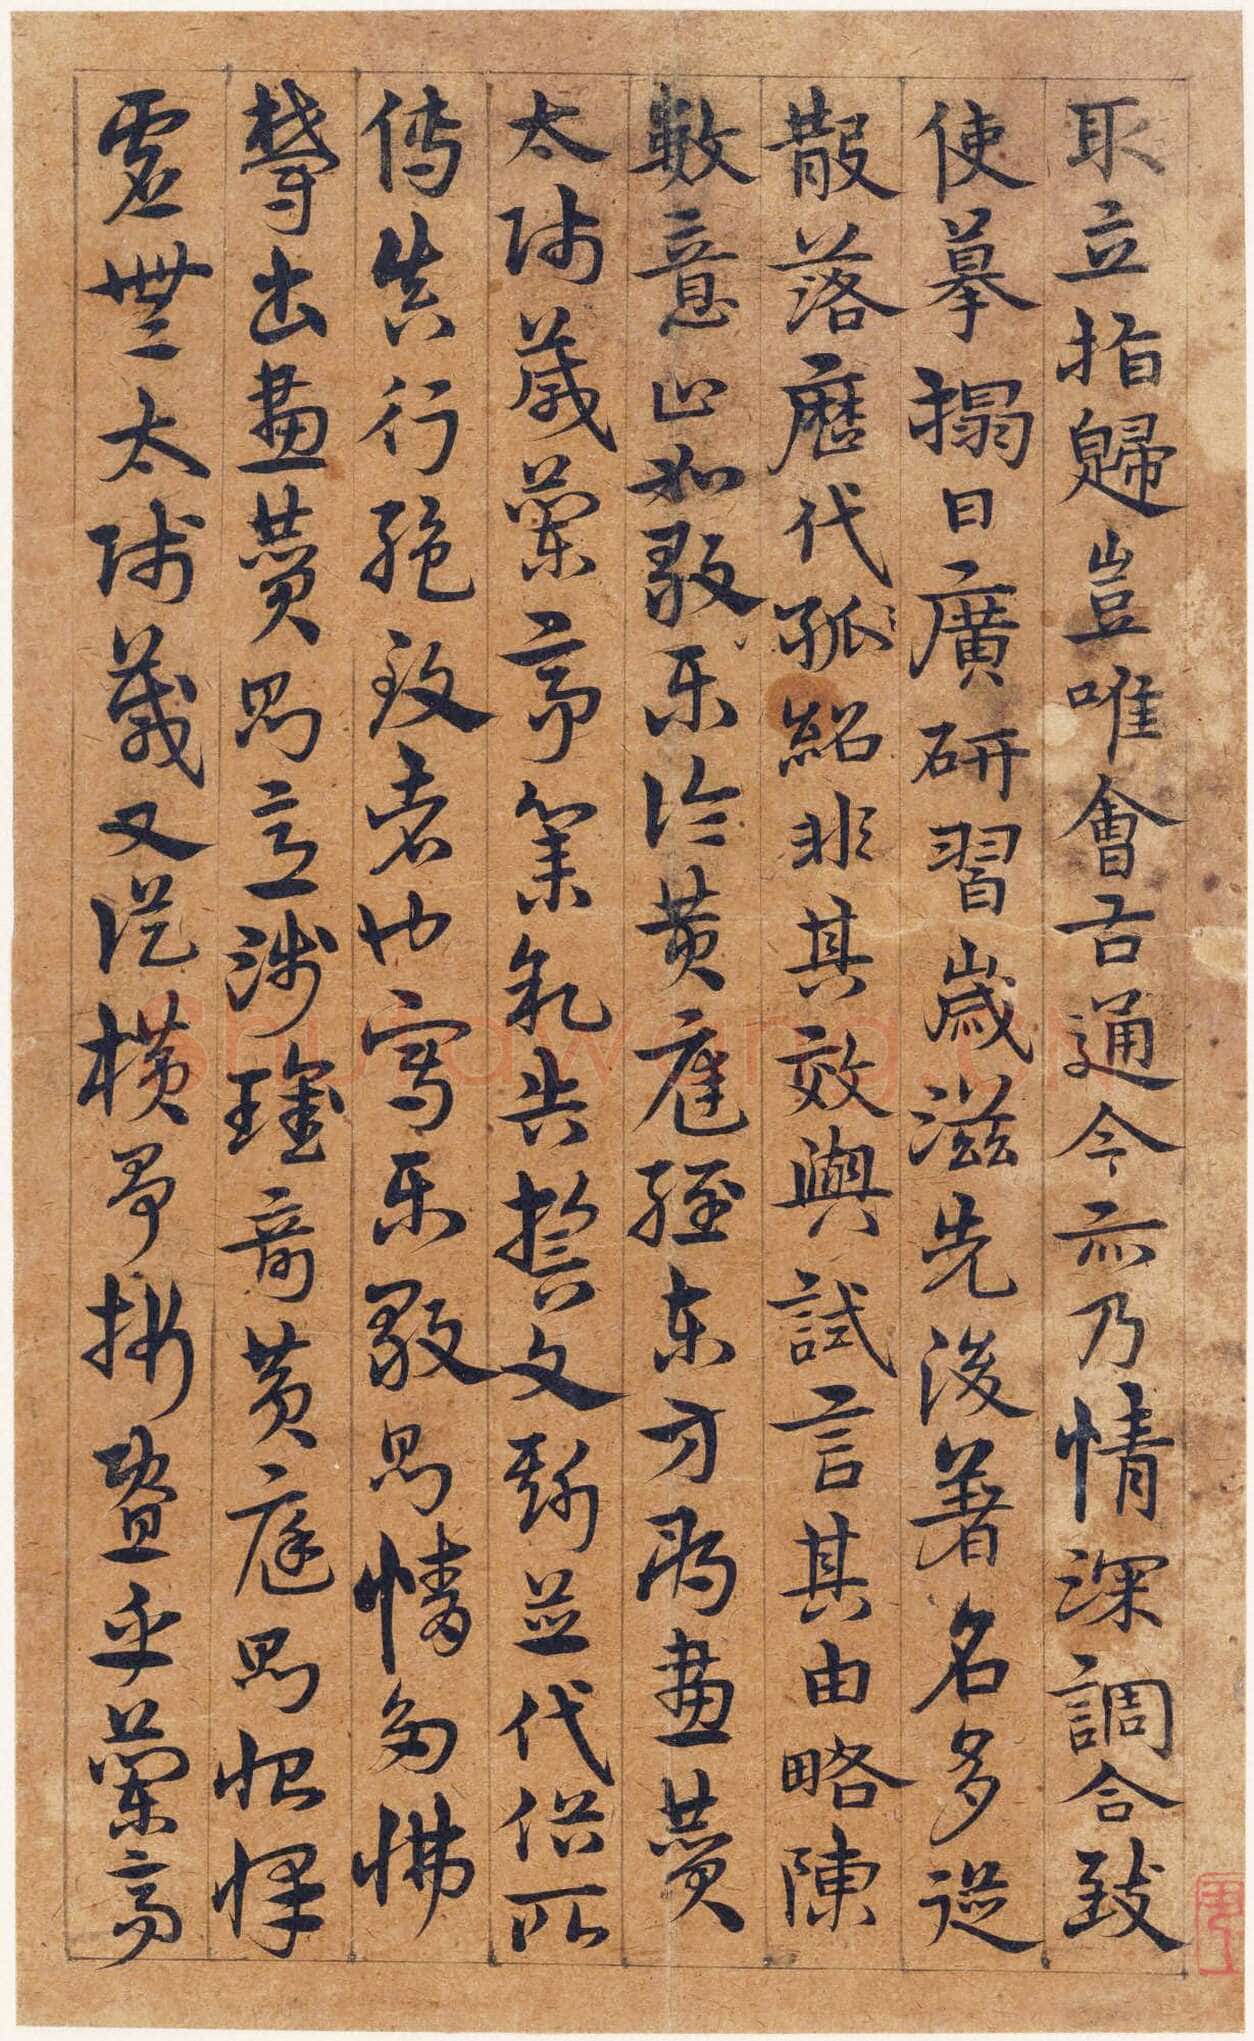 取立指歸豈唯會古通今亦乃情深調合致
使摹搨日廣研習歲滋先後著名多從
散落歷代孤紹非其效與試言其由略陳
數意止如毅樂論黃庭經東方朔畫贊
太師箴蘭亭集序告誓文斯並代俗所
傳真行絕致者也寫樂毅則情多怫
鬱書畫贊則意涉瑰奇黃庭則怡懌
虛無太師箴又從橫爭折暨乎蘭亭
Shufawang.CN